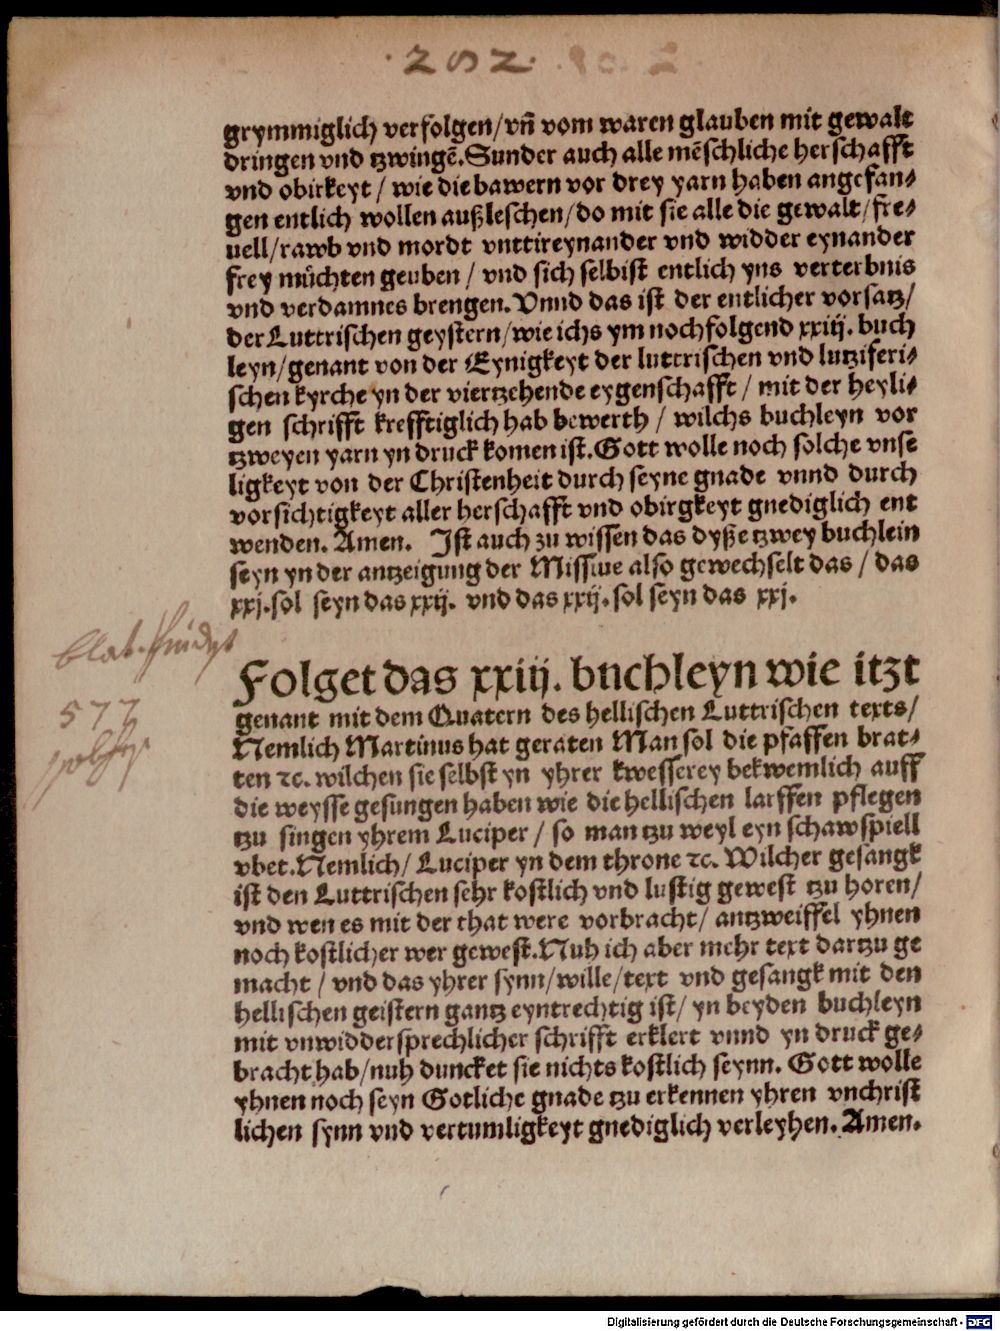 · 252 ·
grymmiglich verfolgen/vñ vom waren glauben mit gewalt
dringen vnd tzwingẽ. Sunder auch alle mẽschliche herschafft
vnd obirkeyt / wie die bawern vor drey yarn haben angefan⸗
gen entlich wollen außleschen/do mit sie alle die gewalt/fre⸗
uell/rawb vnd mordt vnttireynander vnd widder eynander
frey můchten geuben / vnd sich selbist entlich yns verterbnis
vnd verdamnes brengen. Vnnd das ist der entlicher vorsatz/
der Luttrischen geystern/wie ichs ym nochfolgend xxiij. buch
leyn/genant von der Eynigkeyt der luttrischen vnd lutziferi⸗
schen kyrche yn der viertzehende eygenschafft / mit der heyli⸗
gen schrifft krefftiglich hab bewerth / wilchs buchleyn vor
tzweyen yarn yn druck komen ist. Gott wolle noch solche vnse
ligkeyt von der Christenheit durch seyne gnade vnnd durch
vorsichtigkeyt aller herschafft vnd obirgkeyt gnediglich ent
wenden. Amen. Ist auch zu wissen das dyße tzwey buchlein
seyn yn der antzeigung der Missiue also gewechselt das / das
xxj. sol seyn das xxij. vnd das xxij. sol seyn das xxj.
blat
577
Folget das xxiij. bnchleyn wie itzt
genant mit dem Quatern des hellischen Luttrischen texts/
Nemlich Martinus hat geraten Man sol die pfaffen brat⸗
ten ꝛc. wilchen sie selbst yn yhrer kwesserey bekwemlich auff
die weysse gesungen haben wie die hellischen larffen pflegen
tzu singen yhrem Luciper / so man tzu weyl eyn schawspiell
vbet. Nemlich/ Luciper yn dem throne ꝛc. Wilcher gesangk
ist den Luttrischen sehr kostlich vnd lustig gewest tzu horen/
vnd wen es mit der that were vorbracht/ antzweiffel yhnen
noch kostlicher wer gewest. Nuh ich aber mehr text dartzu ge
macht / vnd das yhrer synn/wille/text vnd gesangk mit den
hellischen geistern gantz eyntrechtig ist/ yn beyden buchleyn
mit vnwiddersprechlicher schrifft erklert vnnd yn druck ge⸗
bracht hab/nuh duncket sie nichts kostlich seynn. Gott wolle
yhnen noch seyn Gotliche gnade tzu erkennen yhren vnchrist
lichen synn vnd vertumligkeyt gnediglich verleyhen. Amen.
Digitalisierung gefördert durch die Deutsche Forschungsgemeinschaft - DFG